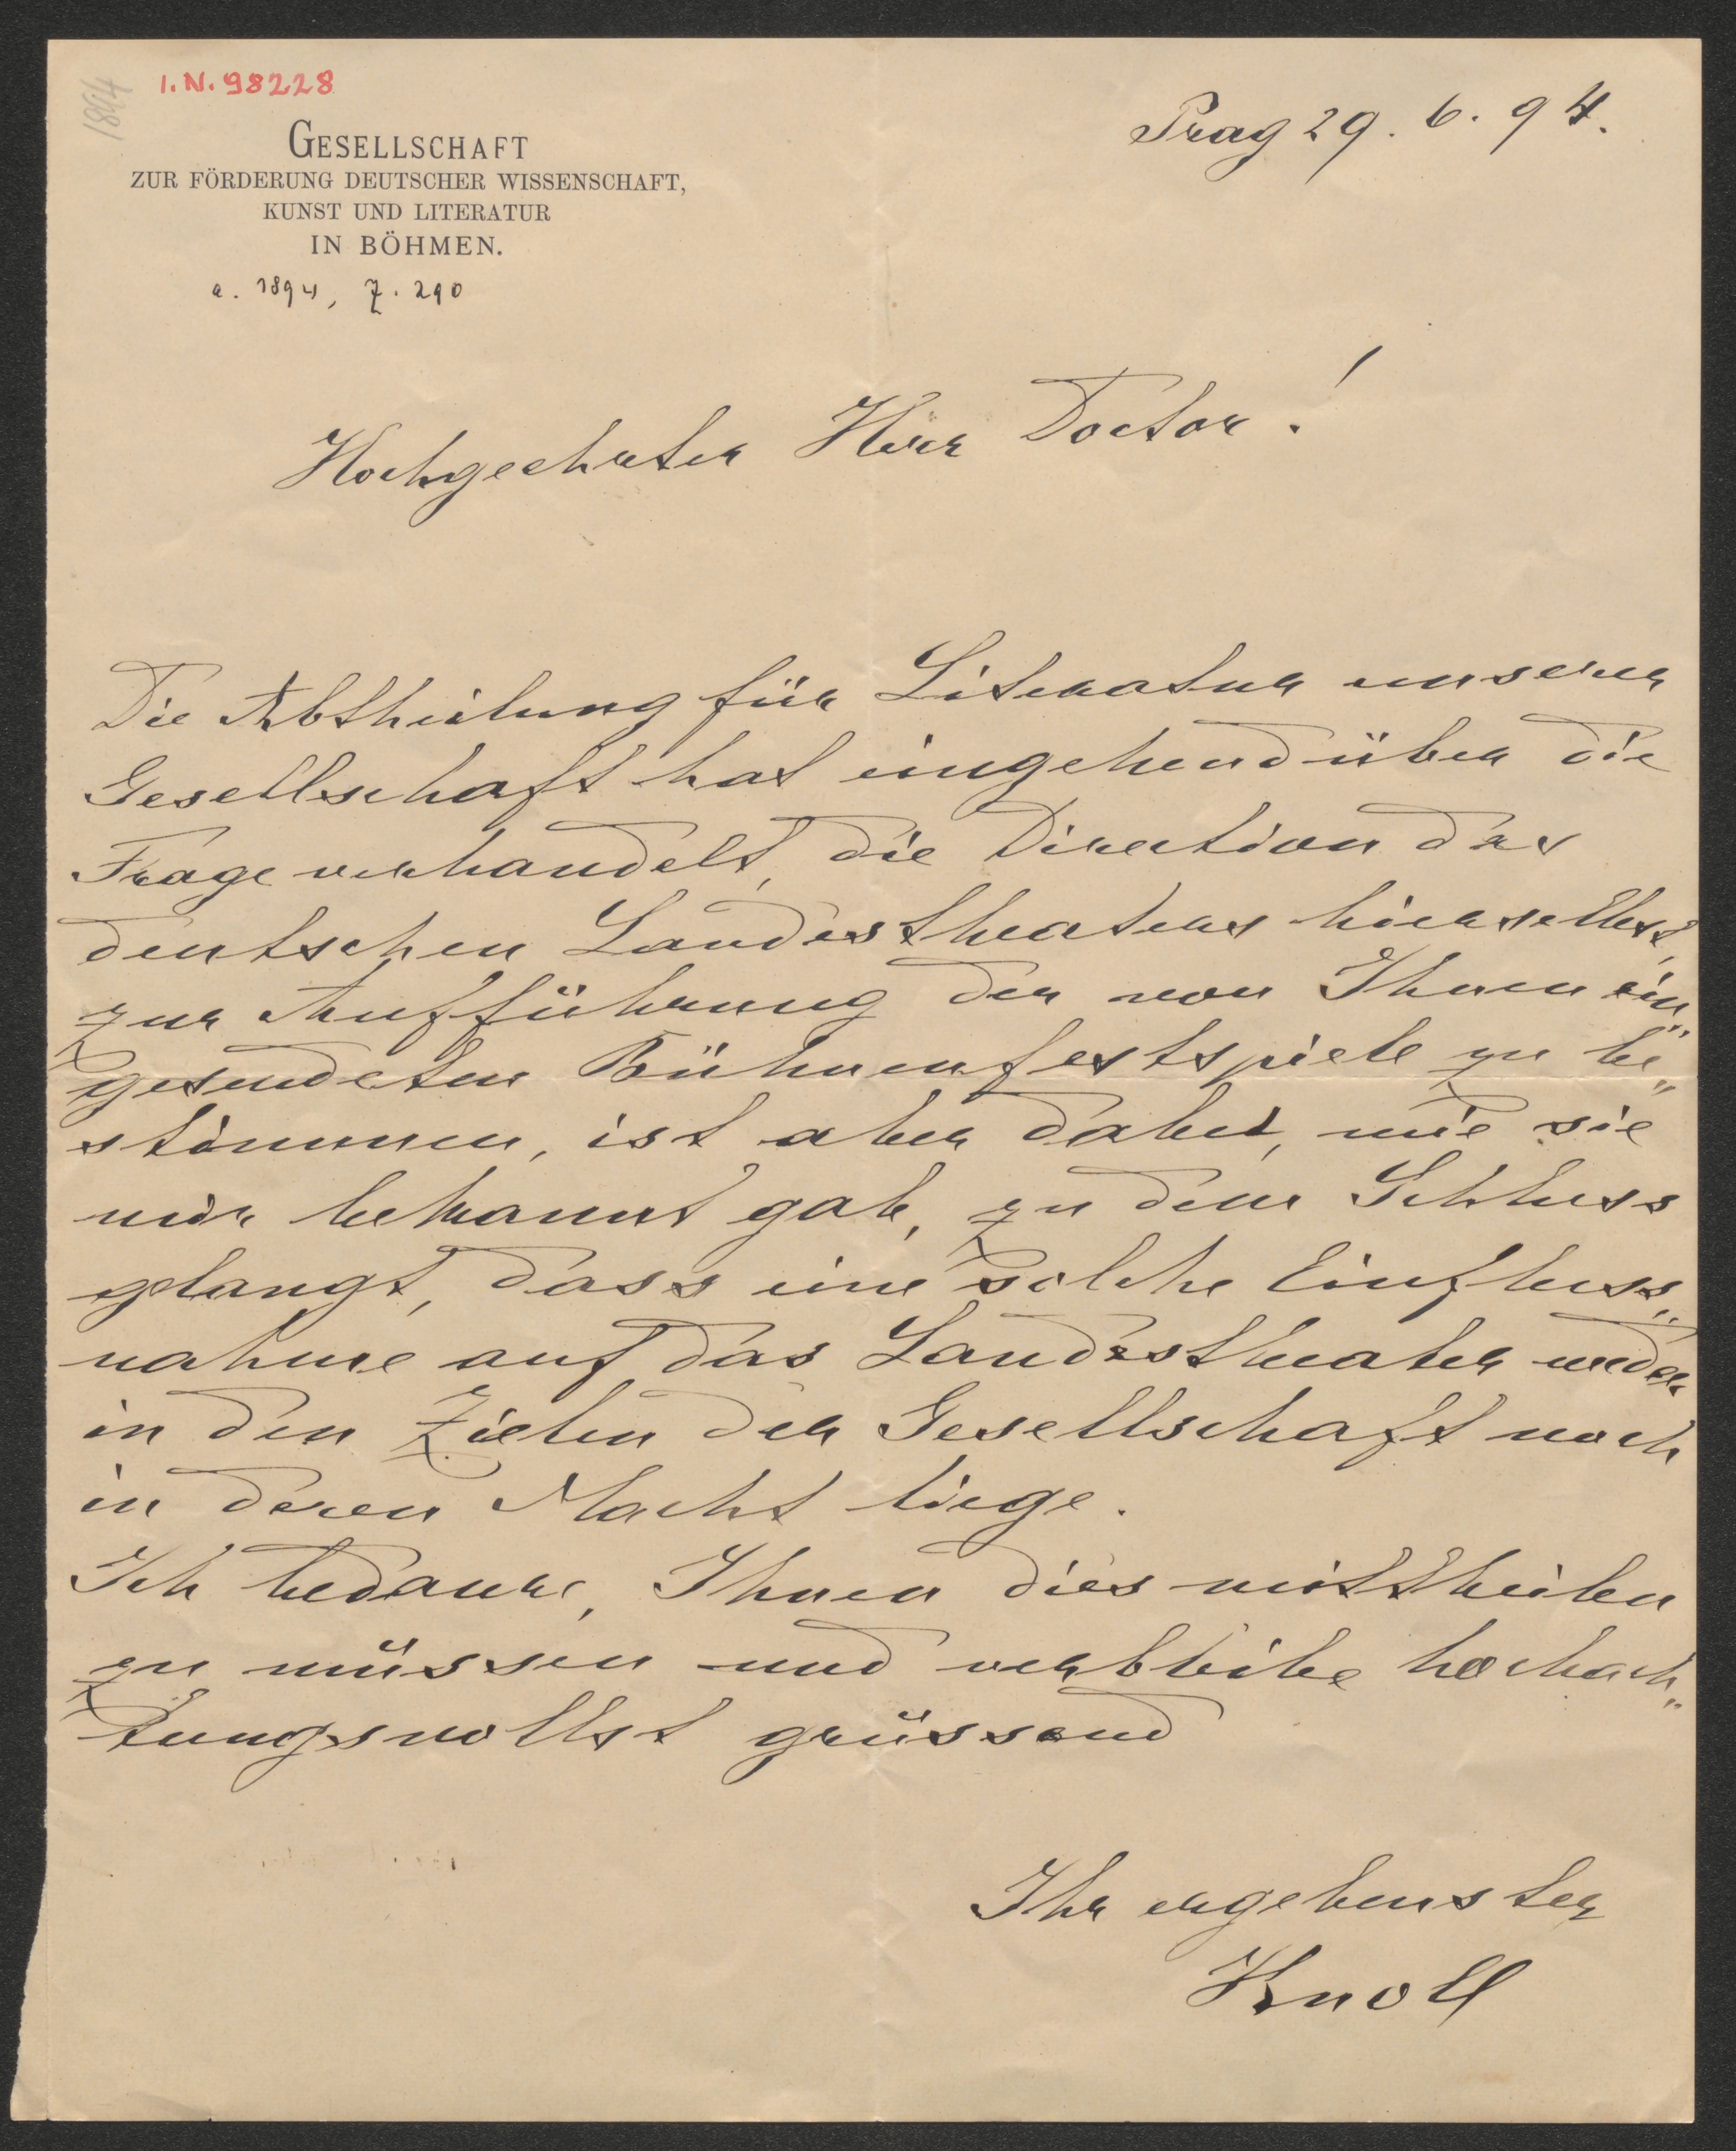 1894
I.N. 98228
GESELLSCHAFT
ZUR FÖRDERUNG DEUTSCHER WISSENSCHAFT,
KUNST UND LITERATUR
IN BÖHMEN.
a. 1894, Z. 290
Prag 29. 6. 94.
Hochgeehrter Herr Doctor!
Die Abtheilung für Literatur unserer
Gesellschaft hat eingehend über die
Frage verhandelt, die Direction des
deutschen Landestheaters hierselbst,
zur Aufführung der von Ihnen ein„
gesendeten Bühnenfestspiele zu be„
stimmen, ist aber dabei, wie sie
mir bekannt gab, zu dem Schluss
gelangt, dass eine solche Einfluss„
nahme auf das Landestheater weder
in den Zielen der Gesellschaft noch
in deren Macht liege.
Ich bedaure, Ihnen dies mittheilen
zu müssen und verbleibe hochach„
tungsvollst grüssend
Ihr ergebenster
Knoll